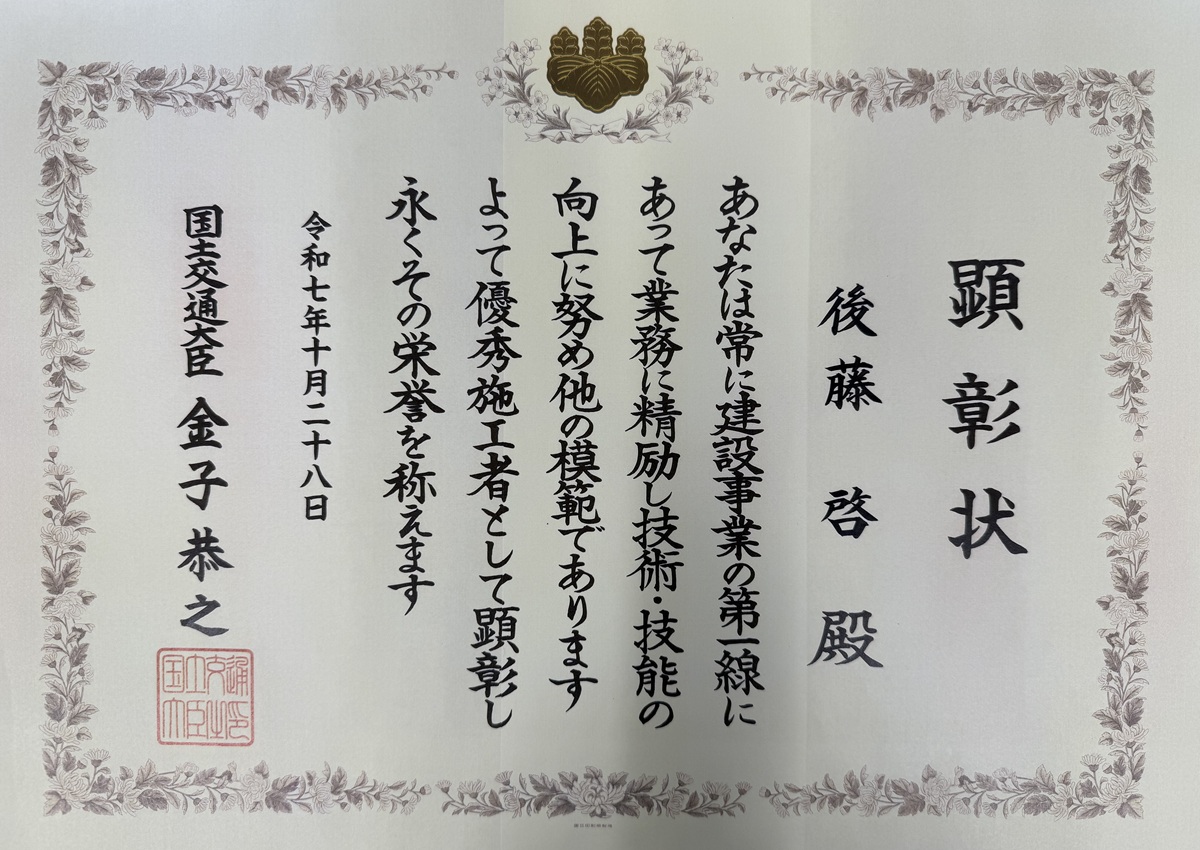 顕彰状
後藤 啓 殿
あなたは常に建設事業の第一線に
あって業務に精励し技術・技能の
向上に努め他の模範であります
よって優秀施工者として顕彰し
永くその栄誉を称えます
令和七年十月二十八日
国土交通大臣 金子恭之